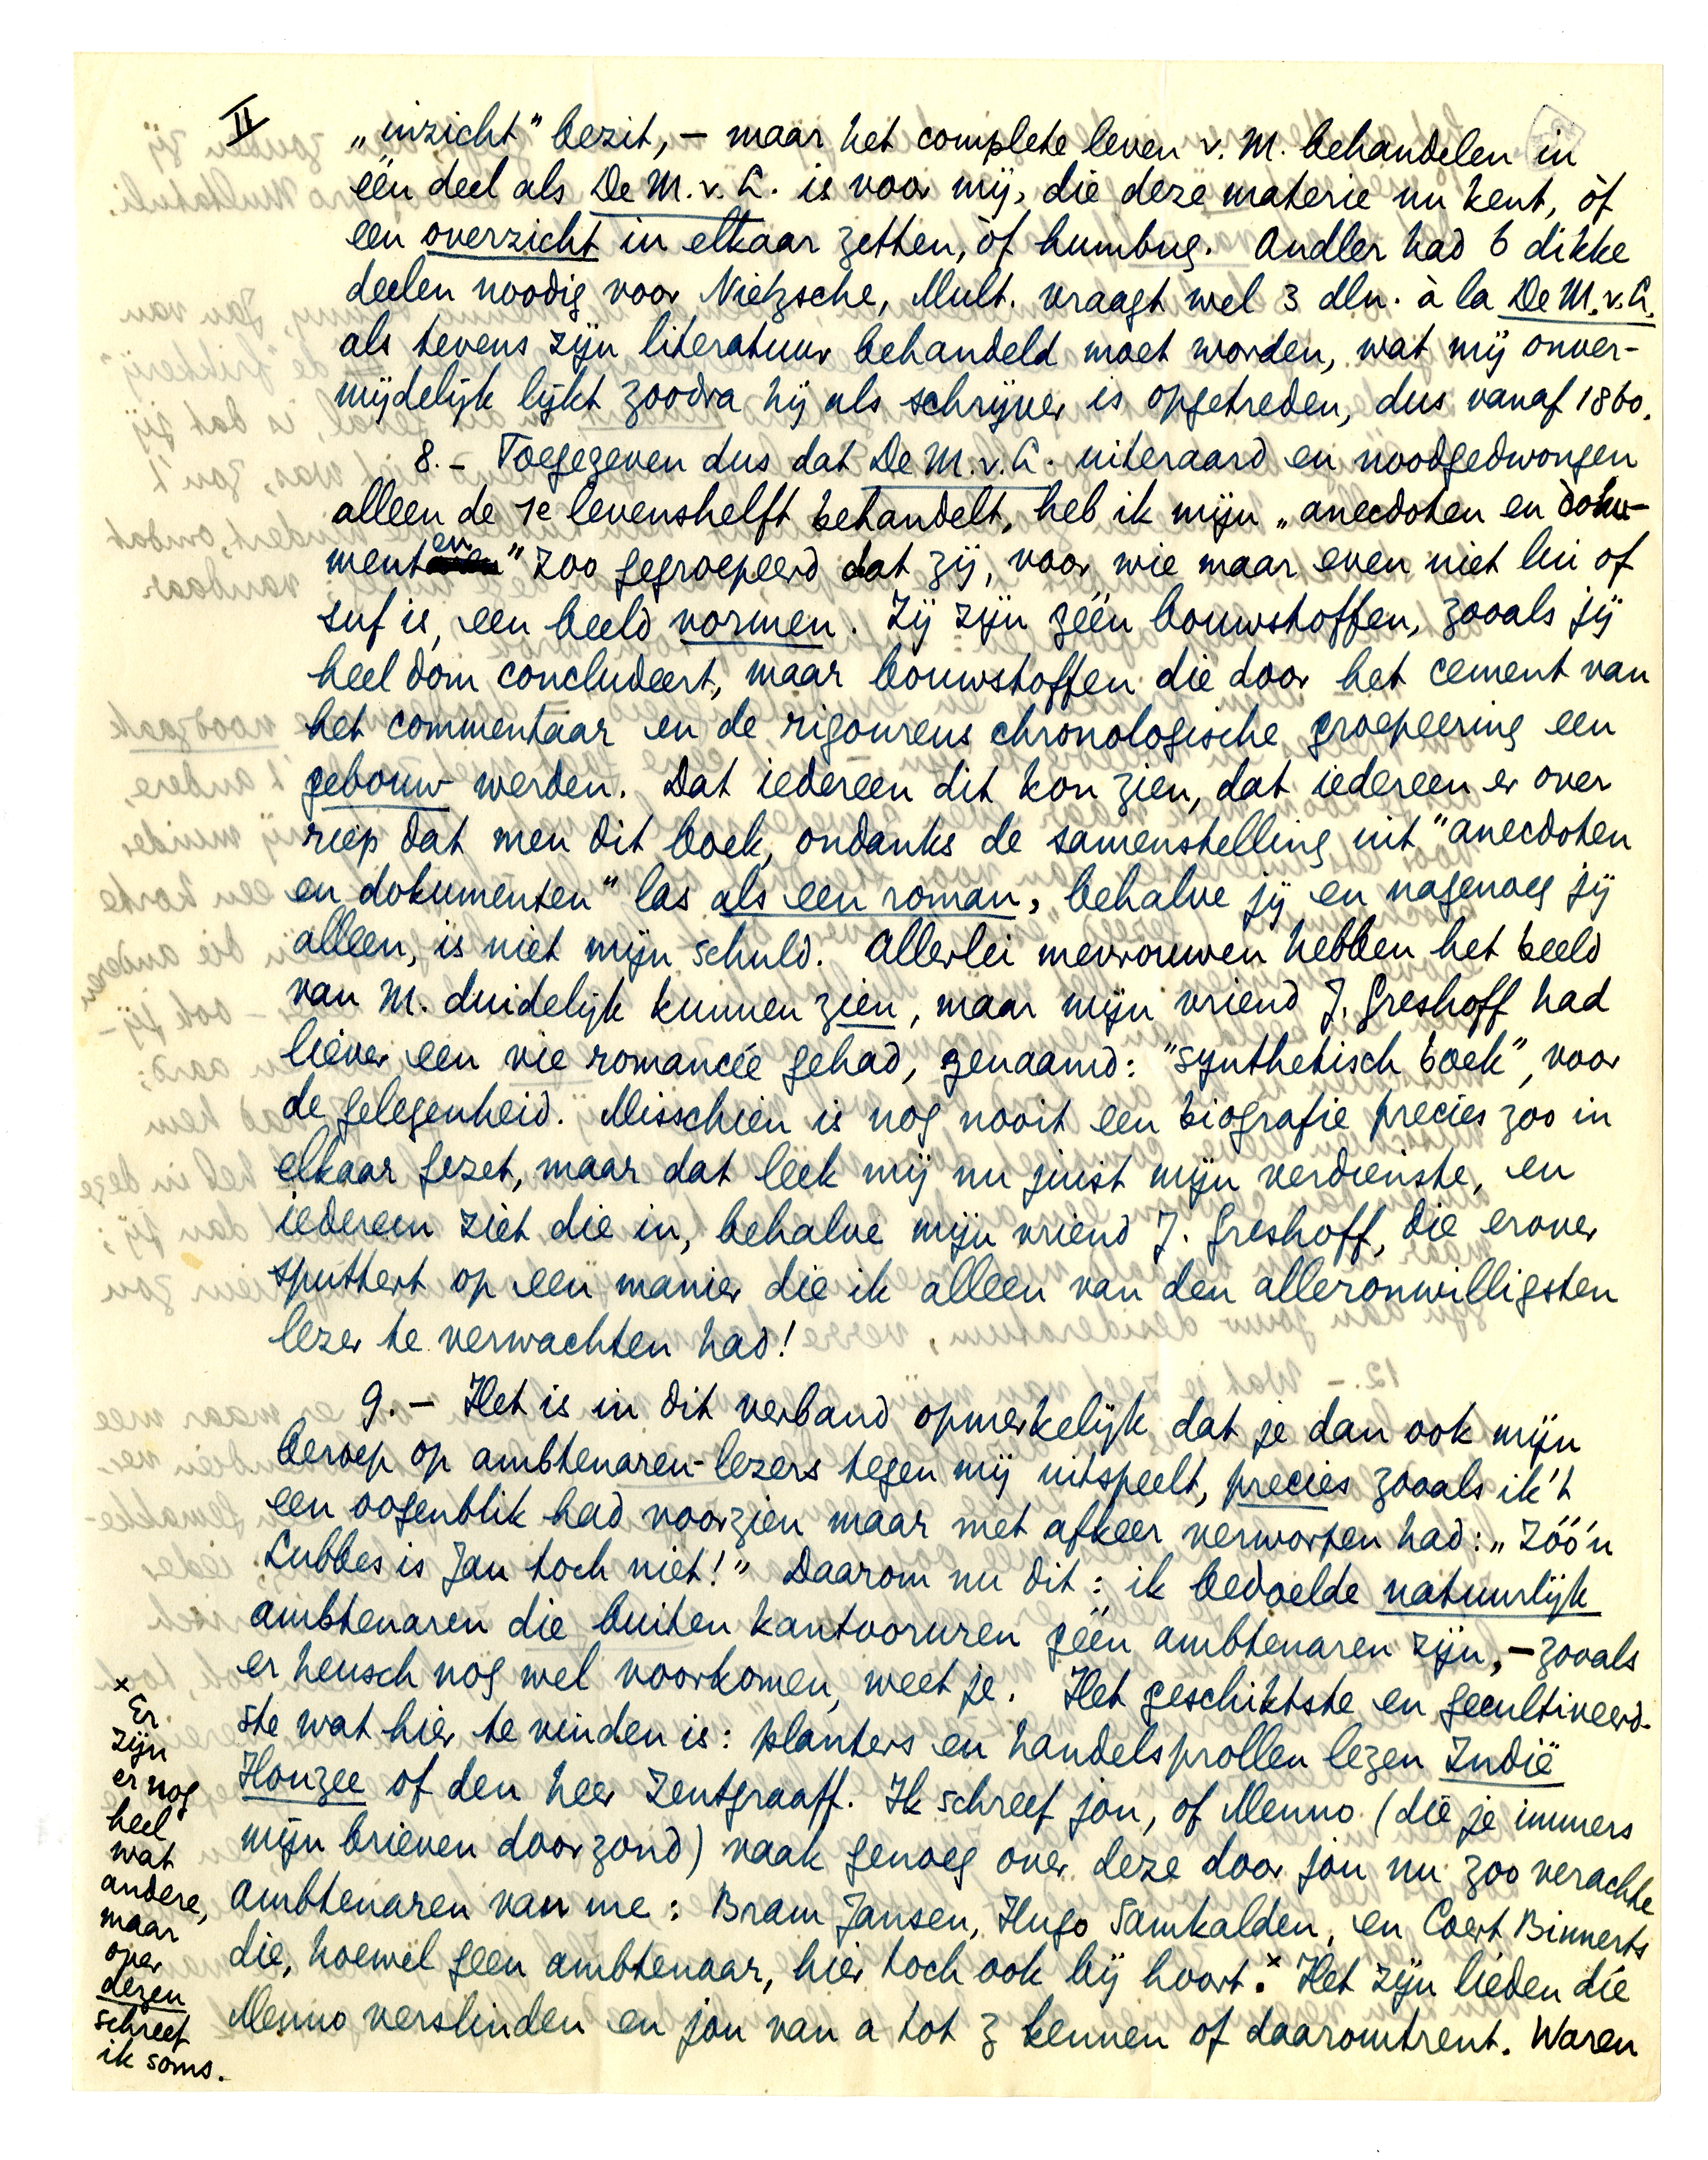 II
„inzicht" bezit, – maar het complete leven v. M. behandelen in
één deel als De M. v. L. is voor mij, die deze materie nu kent, òf
een overzicht in elkaar zetten, òf humbug. Andler had 6 dikke
deelen noodig voor Nietzsche, Mult. vraagt wel 3 dln. à la De M. v. L.
als tevens zijn literatuur behandeld moet worden, wat mij onver-
mijdelijk lijkt zoodra hij als schrijver is opgetreden, dus vanaf 1860.
8. – Toegegeven dus dat De M. v. L. uiteraard en noodgedwongen
alleen de 1e levenshelft behandelt, heb ik mijn „anecdoten en doku-
menten" zoo gegroepeerd dat zij, voor wie maar even niet lui of
suf is, een beeld vormen. Zij zijn géén bouwstoffen, zooals jij
heel dom concludeert, maar bouwstoffen die door het cement van
het commentaar en de rigoureus chronologische groepeering een
gebouw werden. Dat iedereen dit kon zien, dat iedereen er over
riep dat men dit boek, ondanks de samenstelling uit "anecdoten
en dokumenten" las als een roman, behalve jij en nagenoeg jij
alleen, is niet mijn schuld. Allerlei mevrouwen hebben het beeld
van M. duidelijk kunnen zien, maar mijn vriend J. Greshoff had
liever een vie romancée gehad, genaamd: "synthetisch boek", voor
de gelegenheid. Misschien is nog nooit een biografie precies zoo in
elkaar gezet, maar dat leek mij nu juist mijn verdienste, en
iedereen ziet die in, behalve mijn vriend J. Greshoff, die erover
sputtert op een manier die ik alleen van den alleronwilligsten
lezer te verwachten had!
9. – Het is in dit verband opmerkelijk dat je dan ook mijn
beroep op ambtenaren-lezers tegen mij uitspeelt, precies zooals ik 't
een oogenblik had voorzien maar met afkeer verworpen had: „Zóó'n
Lubbes is Jan toch niet!" Daarom nu dit: ik bedoelde natuurlijk
ambtenaren die buiten kantooruren géén ambtenaren zijn, – zooals
er heusch nog wel voorkomen, weet je. Het geschiktste en gecultiveerd-
ste wat hier te vinden is: planters en handelsprollen lezen Indië
Houzee of den heer Zentgraaff. Ik schreef jou, of Menno (die je immers
mijn brieven doorzond) vaak genoeg over deze door jou nu zoo verachte
ambtenaren van me: Bram Jansen, Hugo Samkalden, en Coert Binnerts
die, hoewel geen ambtenaar, hier toch ook bij hoort.x Het zijn lieden die
Menno verslinden en jou van a tot z kennen of daaromtrent. Waren
x Er
zijn
er nog
heel
wat
andere,
maar
over
dezen
schreef
ik soms.